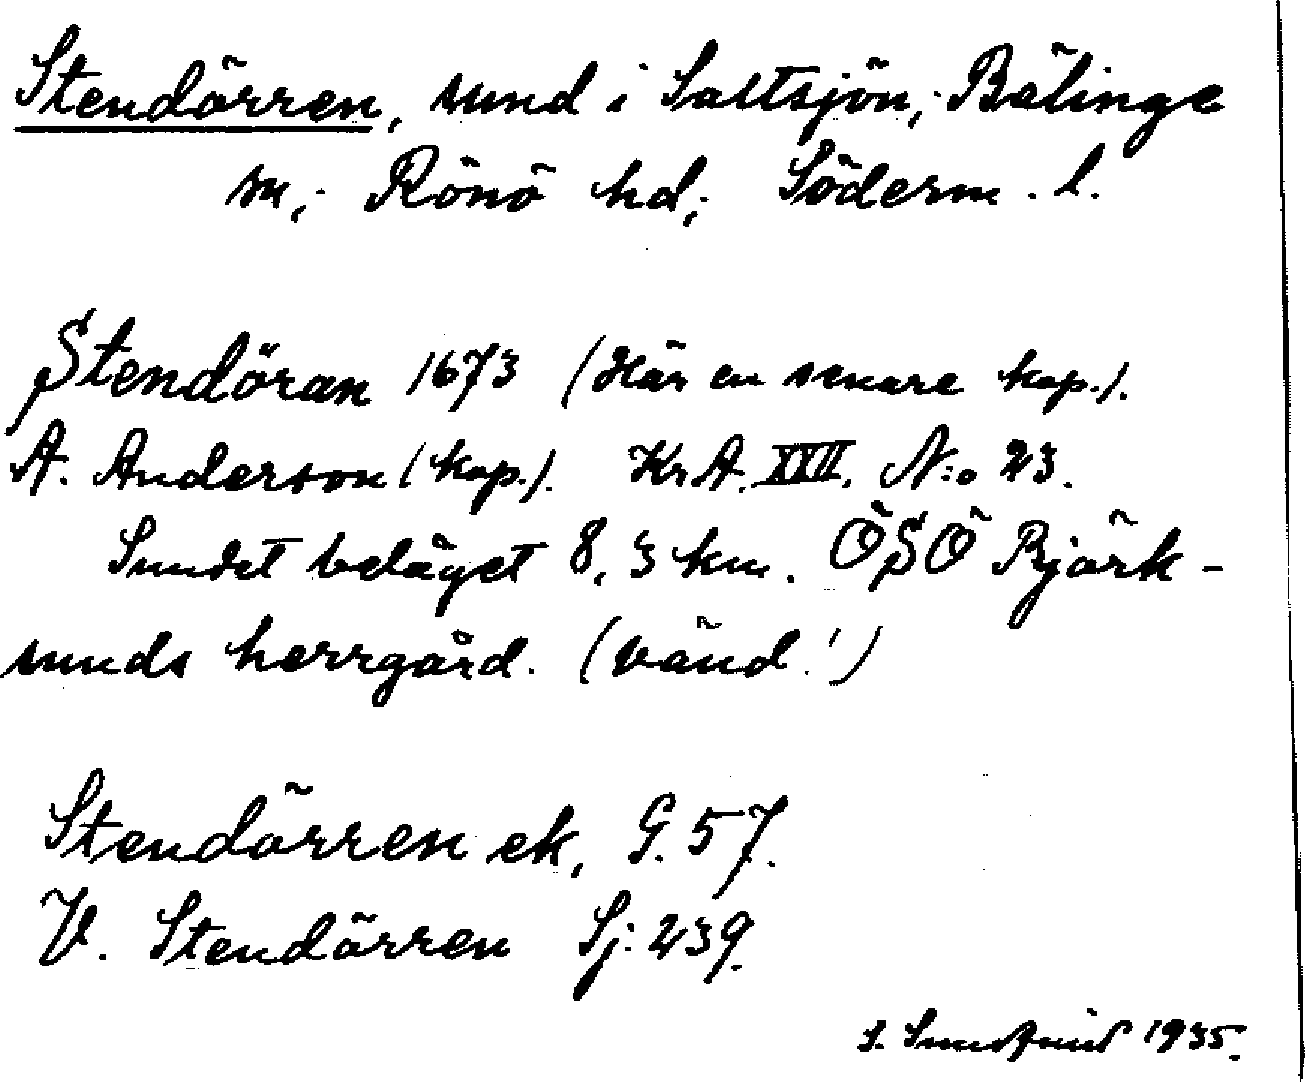 Stendörren, sund i Saltsjön, Bälinge
sn, Rönö hd, Söderm. l.
Stendöran 1673 (Här en senare kop.).
A. Anderson (kop.). KrA. XXII. N:o 23.
Sundet beläget 8,3 km. ÖSÖ Björk-
sunds herrgård. (vänd!)
Stendörren ek, G. 57.
V. Stendörren Sj: 239.
1935.